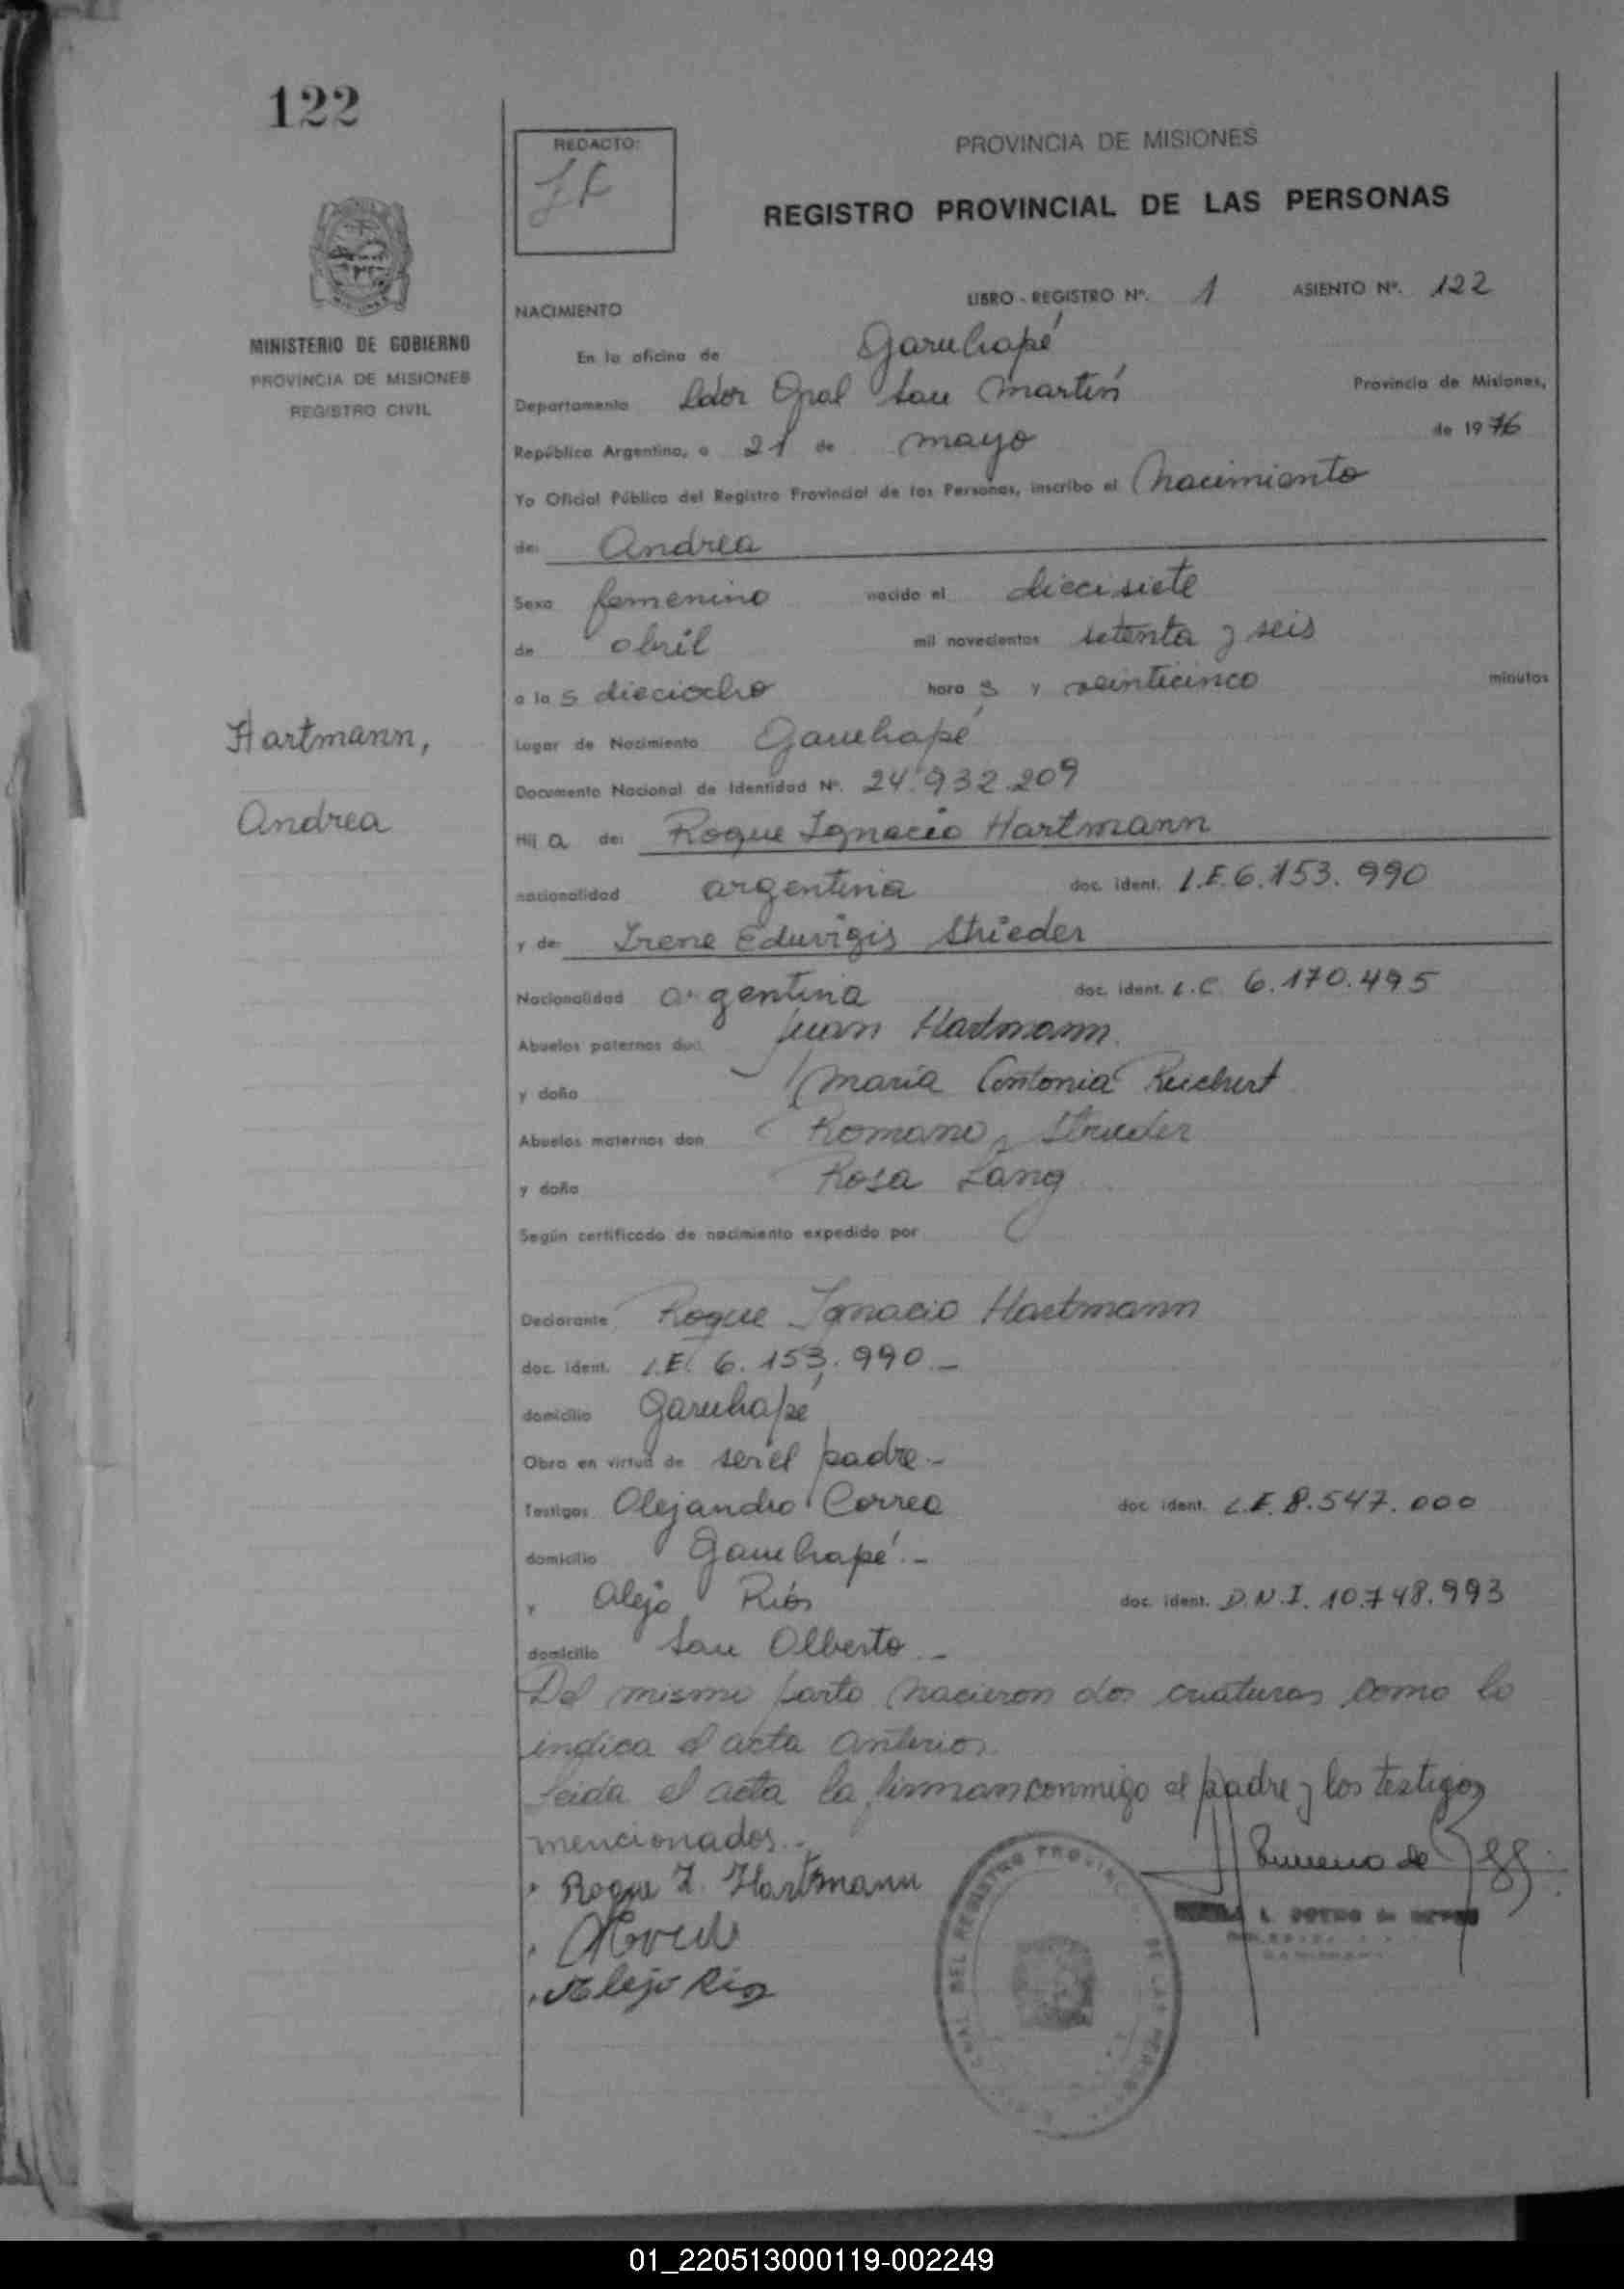 122
REDACTO:
PROVINCIA DE MISIONES
REGISTRO PROVINCIAL DE LAS PERSONAS
MINISTERIO DE GOBIERNO
PROVINCIA DE MISIONES
REGISTRO CIVIL
LIBRO - REGISTRO Nº. 1 ASIENTO Nº. 122
NACIMIENTO
En la oficina de Garuhapé
Departamento Ldor Gral San Martín Provincia de Misiones,
República Argentina, a 21 de mayo de 1976
Yo Oficial Público del Registro Provincial de las Personas, inscribo el Nacimiento
de: Andrea
Sexo femenino nacido el diecisiete
de abril mil novecientos setenta y seis
a las dieciocho horas y veinticinco minutos
Hartmann,
Andrea
Lugar de Nacimiento Garuhapé
Documento Nacional de Identidad Nº. 24.932.209
Hija de: Roque Ignacio Hartmann
nacionalidad argentina doc. ident. L.E. 6.153.990
y de Irene Eduvigis Strieder
Nacionalidad argentina doc. ident. L.C. 6.170.495
Abuelos paternos don Juan Hartmann
y doña María Antonia Reichert
Abuelos maternos don Romano Strieder
y doña Rosa Lang
Según certificado de nacimiento expedido por
Declarante Roque Ignacio Hartmann
doc. ident. L.E. 6.153.990.-
domicilio Garuhapé
Obra en virtud de ser el padre.-
Testigos Alejandro Correa doc. ident. L.E. 8.547.000
domicilio Garuhapé.-
y Alejo Ríos doc. ident. D.N.I. 10.748.993
domicilio San Alberto.-
Del mismo parto nacieron dos criaturas como lo
indica el acta anterior.
Leída el acta la firman conmigo el padre y los testigos
mencionados.-
Roque I. Hartmann
Alejo Rios
DEL REGISTRO PROVINCIAL DE LAS PERSONAS
01_220513000119-002249